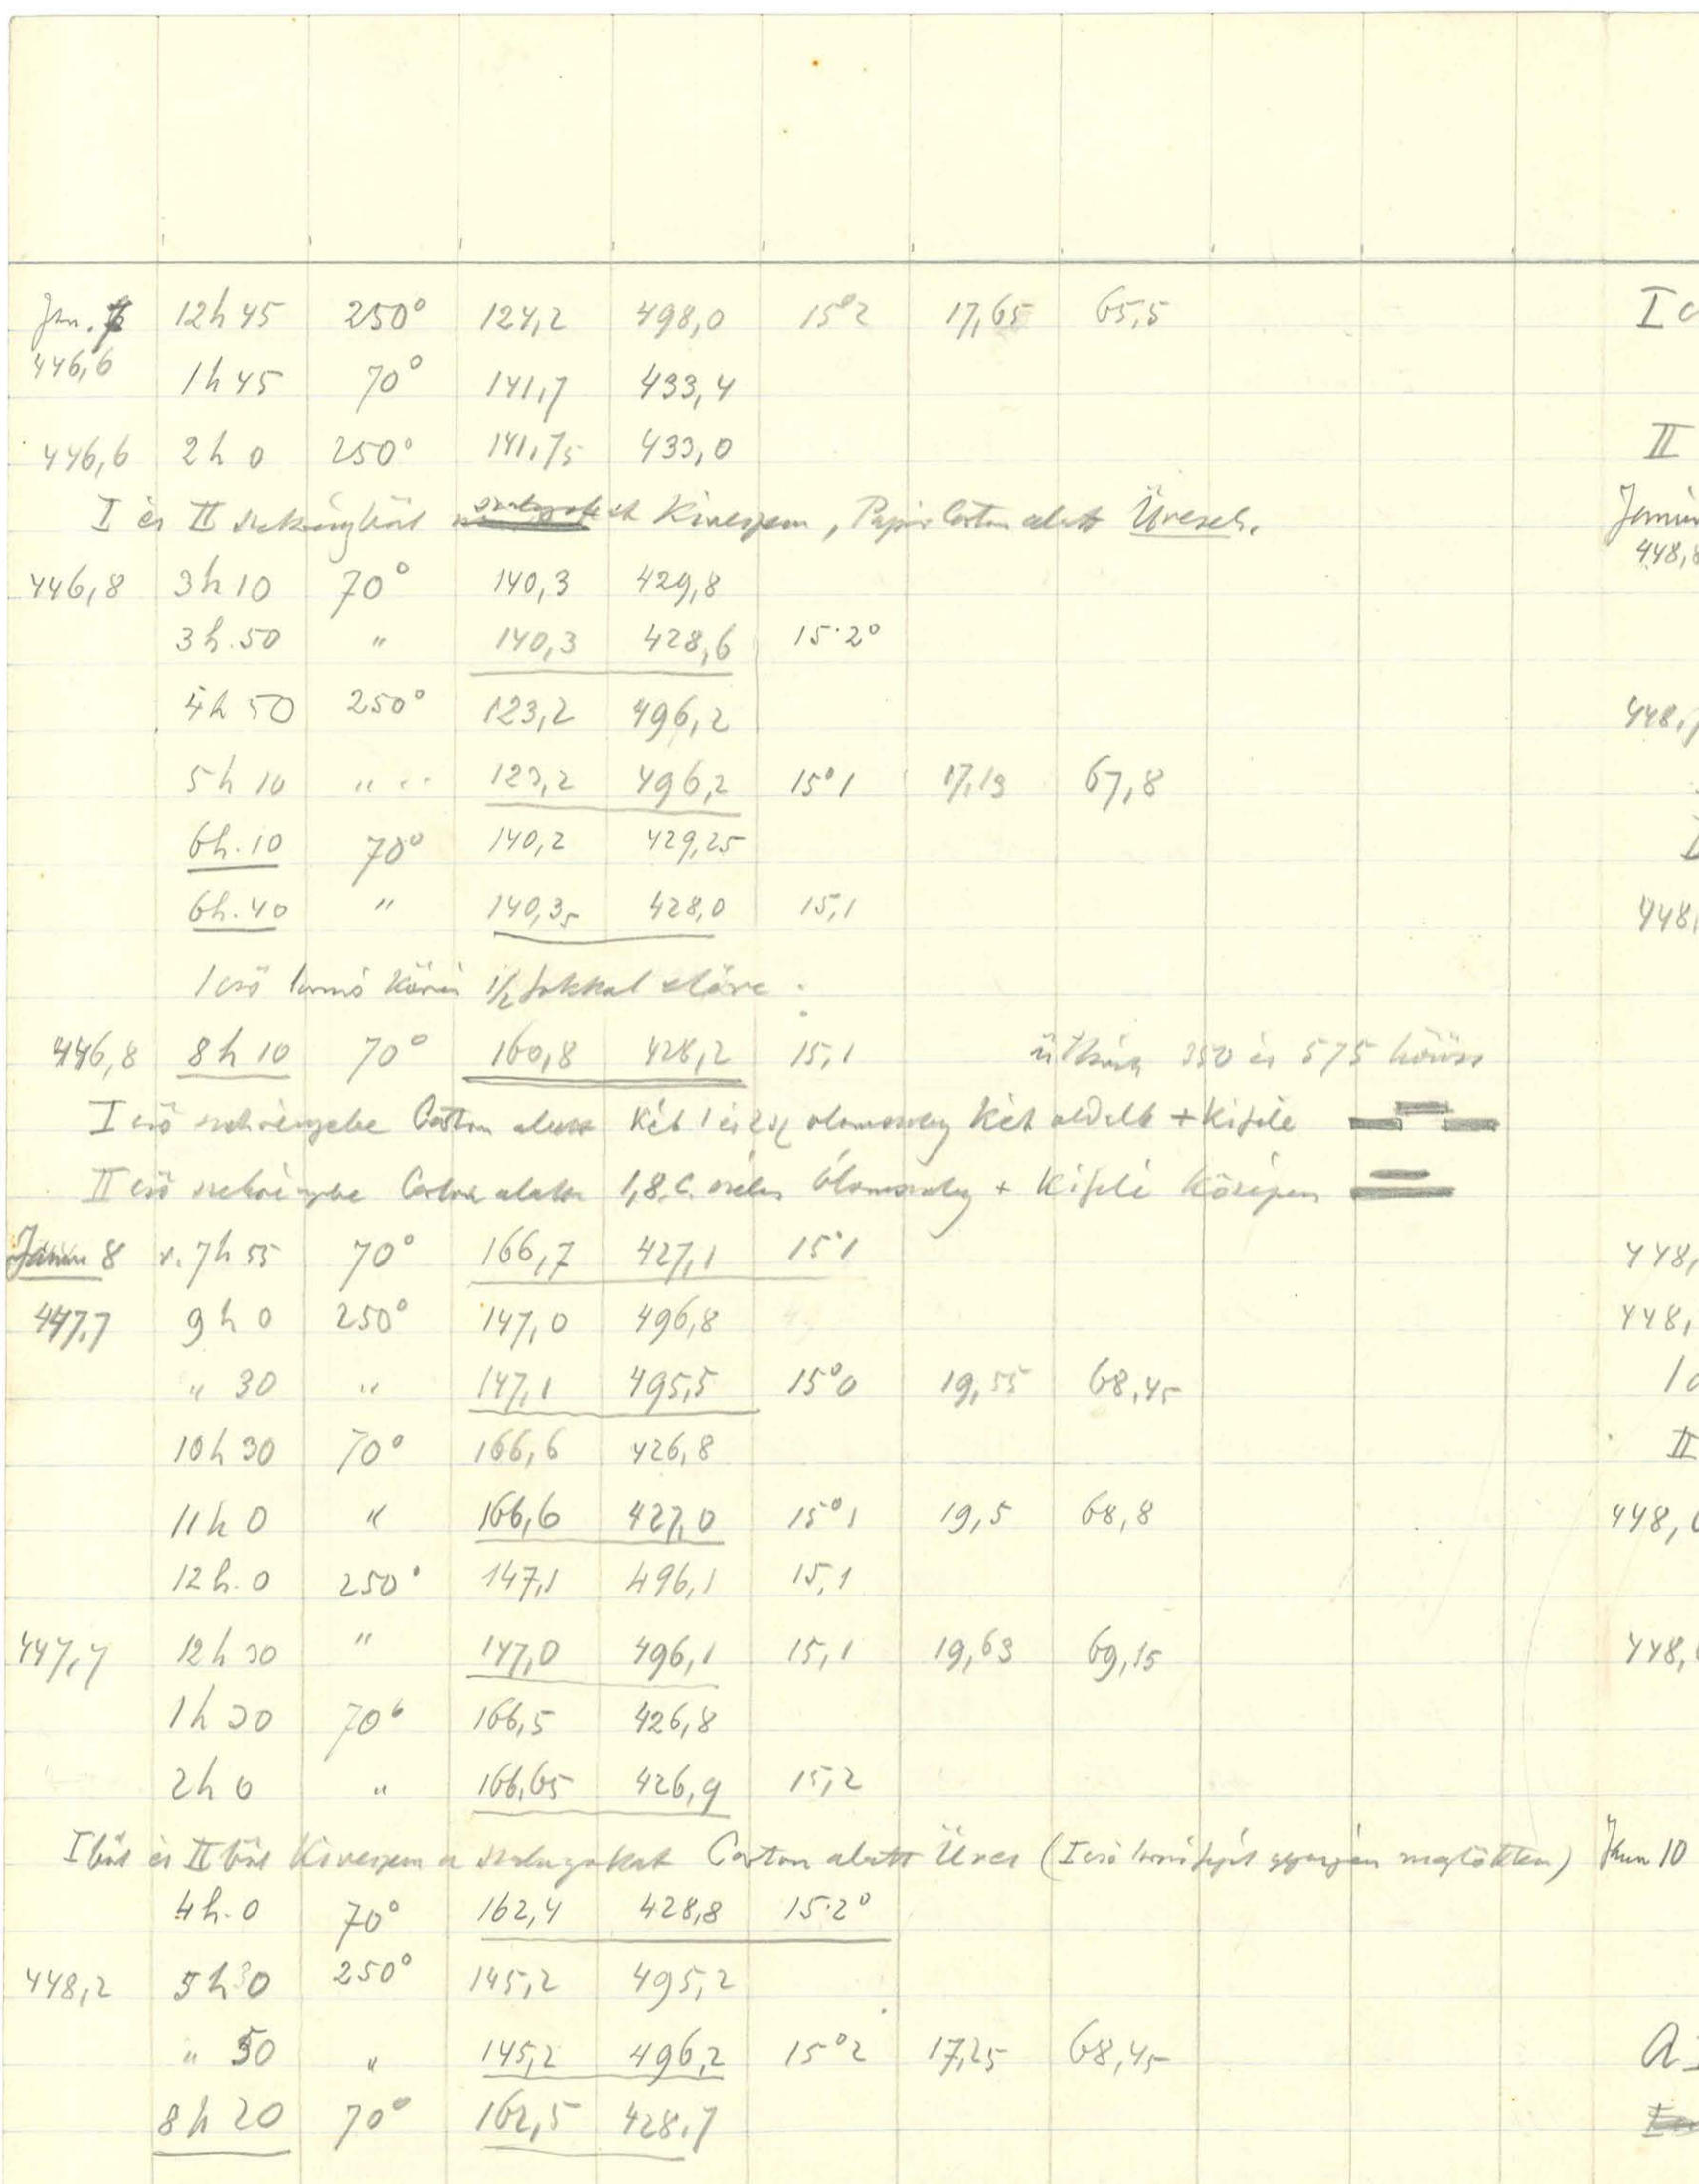 Jan. 7 12h45 250° 124,2 498,0 15°2 17,65 65,5
446,6 1h45 70° 141,7 433,4
446,6 2h 0 250° 141,75 433,0
I és II szekrényből kiveszem, Papir Carton alatt Üresek.
446,8 3h10 70° 140,3 429,8
3h.50 " 140,3 428,6 15·2°
4h 50 250° 123,2 496,2
5h 10 " 123,2 496,2 15°1 17,13 67,8
6h.10 70° 140,2 429,25
6h.40 " 140,35 428,0 15,1
I cső 1/2 fokkal előre.
446,8 8h10 70° 160,8 428,2 15,1 ütközés 350 és 575 között
I cső szekrényebe Carton alatt két ólomszalag két oldalt + Kifelé
II cső szekrényebe Carton alatt 1,8 c. széles ólomszalag + Kifelé középen
Januar 8 r. 7h55 70° 166,7 427,1 15°1
447,7 9h0 250° 147,0 496,8
" 30 " 147,1 495,5 15°0 19,55 68,45
10h30 70° 166,6 426,8
11h0 " 166,6 427,0 15°1 19,5 68,8
12h.0 250° 147,1 496,1 15,1
447,7 12h30 " 147,0 496,1 15,1 19,63 69,15
1h30 70° 166,5 426,8
2h0 " 166,65 426,9 15,2
I ből és II ből kiveszem a szalagokat Carton alatt Üres (I cső
4h.0 70° 162,4 428,8 15·2°
448,2 5h30 250° 145,2 495,2
" 50 " 145,2 496,2 15°2 17,25 68,45
8h20 70° 162,5 428,7
I
II
448,8
448,
448,
448,
448,
II
448,
448,
Jan 10